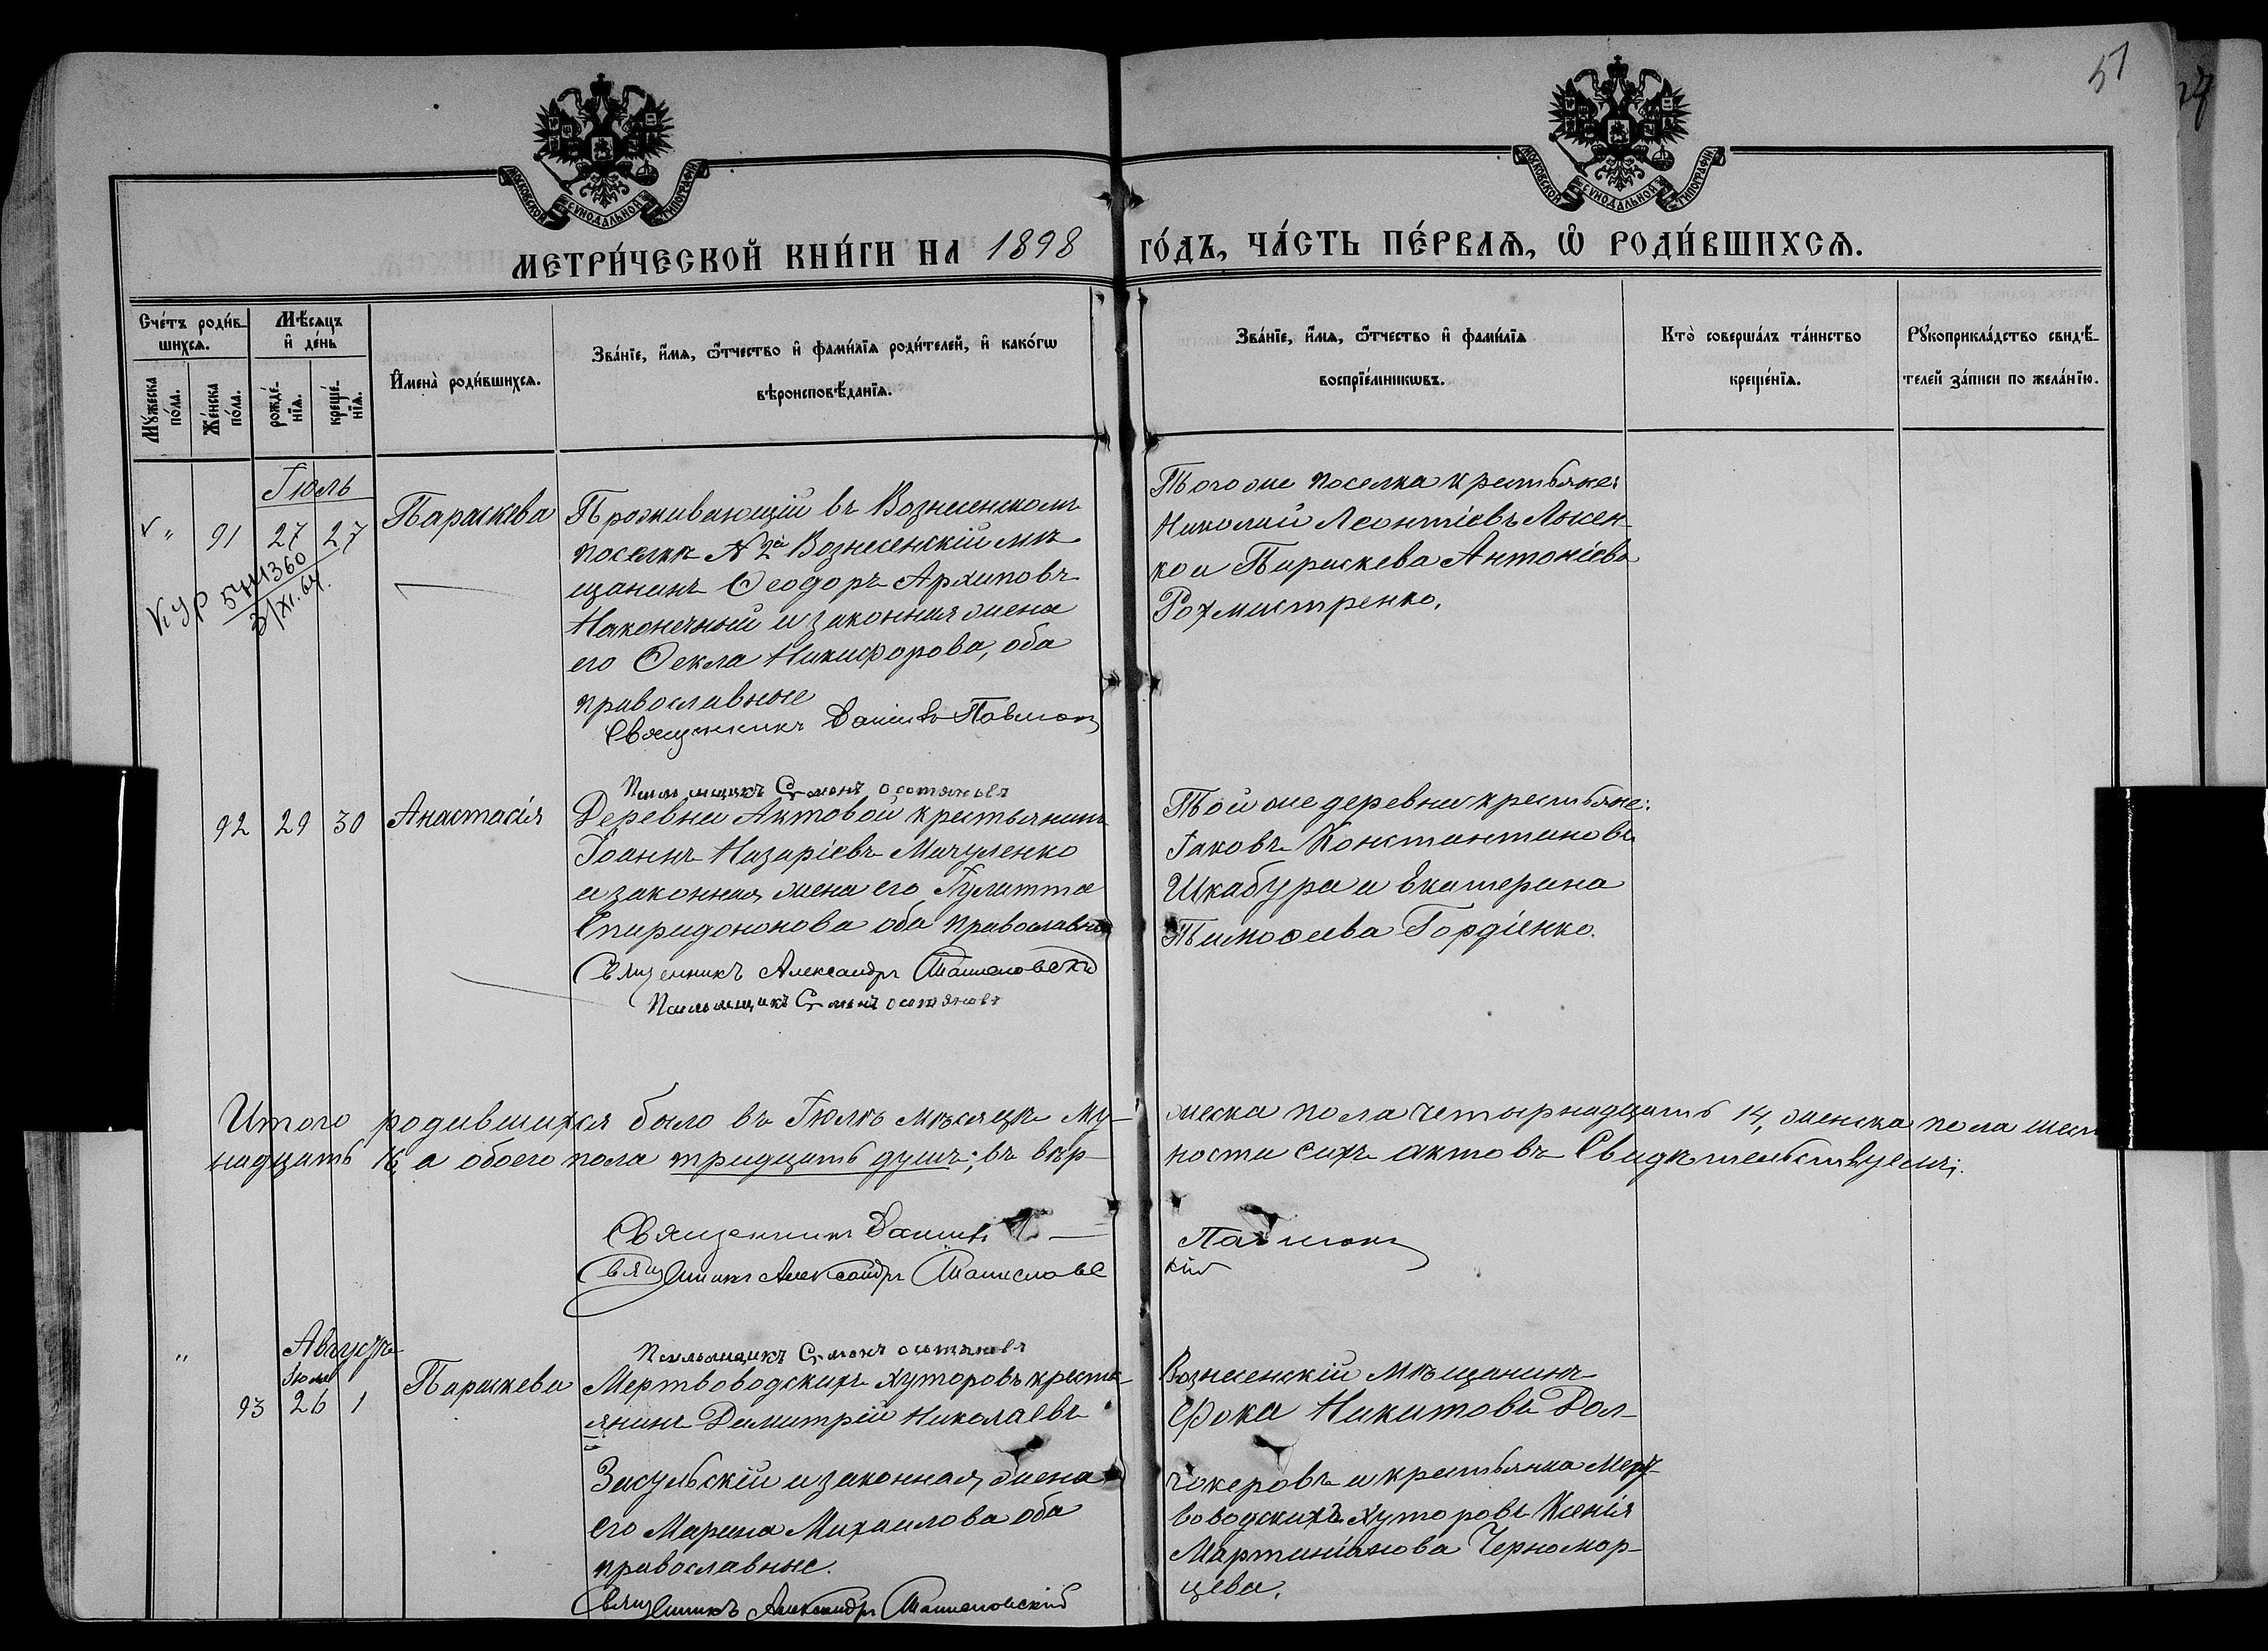 51
24
МОСКОВСКОЙ СѴНОДАЛЬНОЙ ТИПОГРАФІИ
МОСКОВСКОЙ СѴНОДАЛЬНОЙ ТИПОГРАФІИ
МЕТРИ́ЧЕСКОЙ КНИ́ГИ НА 1898 ГО́ДЪ, ЧА́СТЬ ПЕ́РВАѦ, Ѡ РОДИ́ВШИХСѦ.
Сче́тъ роди́в-
шихсѧ.
Мꙋ́жеска по́ла.
Же́нска по́ла.
Мѣ́сѧцъ и҆ де́нь
рожде́-нїѧ.
креще́-нїѧ.
И҆мена̀ роди́вшихсѧ.
Зва́нїе, и҆́мѧ, ѻ҆́тчество и҆ фами́лїѧ роди́телей, и҆ како́гѡ
вѣроисповѣ́данїѧ.
Зва́нїе, и҆́мѧ, ѻ҆́тчество и҆ фами́лїѧ
воспрїе́мникѡвъ.
Кто̀ соверша́лъ та́инство
креще́нїѧ.
Рꙋкоприкла́дство свидѣ́-
телей за́писи по жела́нїю.
Іюль
" 91 27 27 Параскева
Проживающій въ Вознесенскомъ
поселкѣ № 2й Вознесенскій мѣ
щанинъ Ѳеодоръ Архиповъ
Наконечный и законная жена
его Ѳекла Никифорова, оба
православные
Священникъ
Того же поселка крестьяне:
Николай Леонтіевъ Лысен-
ко и Параскева Антоніева
Рохмистренко.
541360
3/XI.64.
Псаломщикъ
92 29 30 Анастасія
Деревни Актовой крестьянинъ
Іоаннъ Назаріевъ Мачуленко
и законная жена его Іулитта
Спиридонова оба православные
Священникъ Александръ
Псаломщикъ
Той же деревни крестьяне:
Іаковъ Константиновъ
Шкабура и Екатерина
Тимоѳеева Гордіенко.
Итого родившихся было въ Іюлѣ мѣсяцѣ му-жеска пола четырнадцать 14, женска пола шест
надцать 16, а обоего пола тридцать душъ; въ вѣр-ности сихъ актовъ Свидѣтельствуемъ:
Священникъ
Священникъ Александръ
Псаломщикъ
Августъ
Іюля
" 93 26 1 Параскева
Мертвоводскихъ Хуторовъ кресть-
янинъ Димитрій Николаевъ
Засульскій и законная жена
его Марина Михаилова оба
православные.
Священникъ Александръ
Вознесенскій мѣщанинъ
Фока Никитовъ Дол-
гокеровъ и крестьянка Мерт-
воводскихъ Хуторовъ Ксенія
Мартиніанова Черномор-
цева.